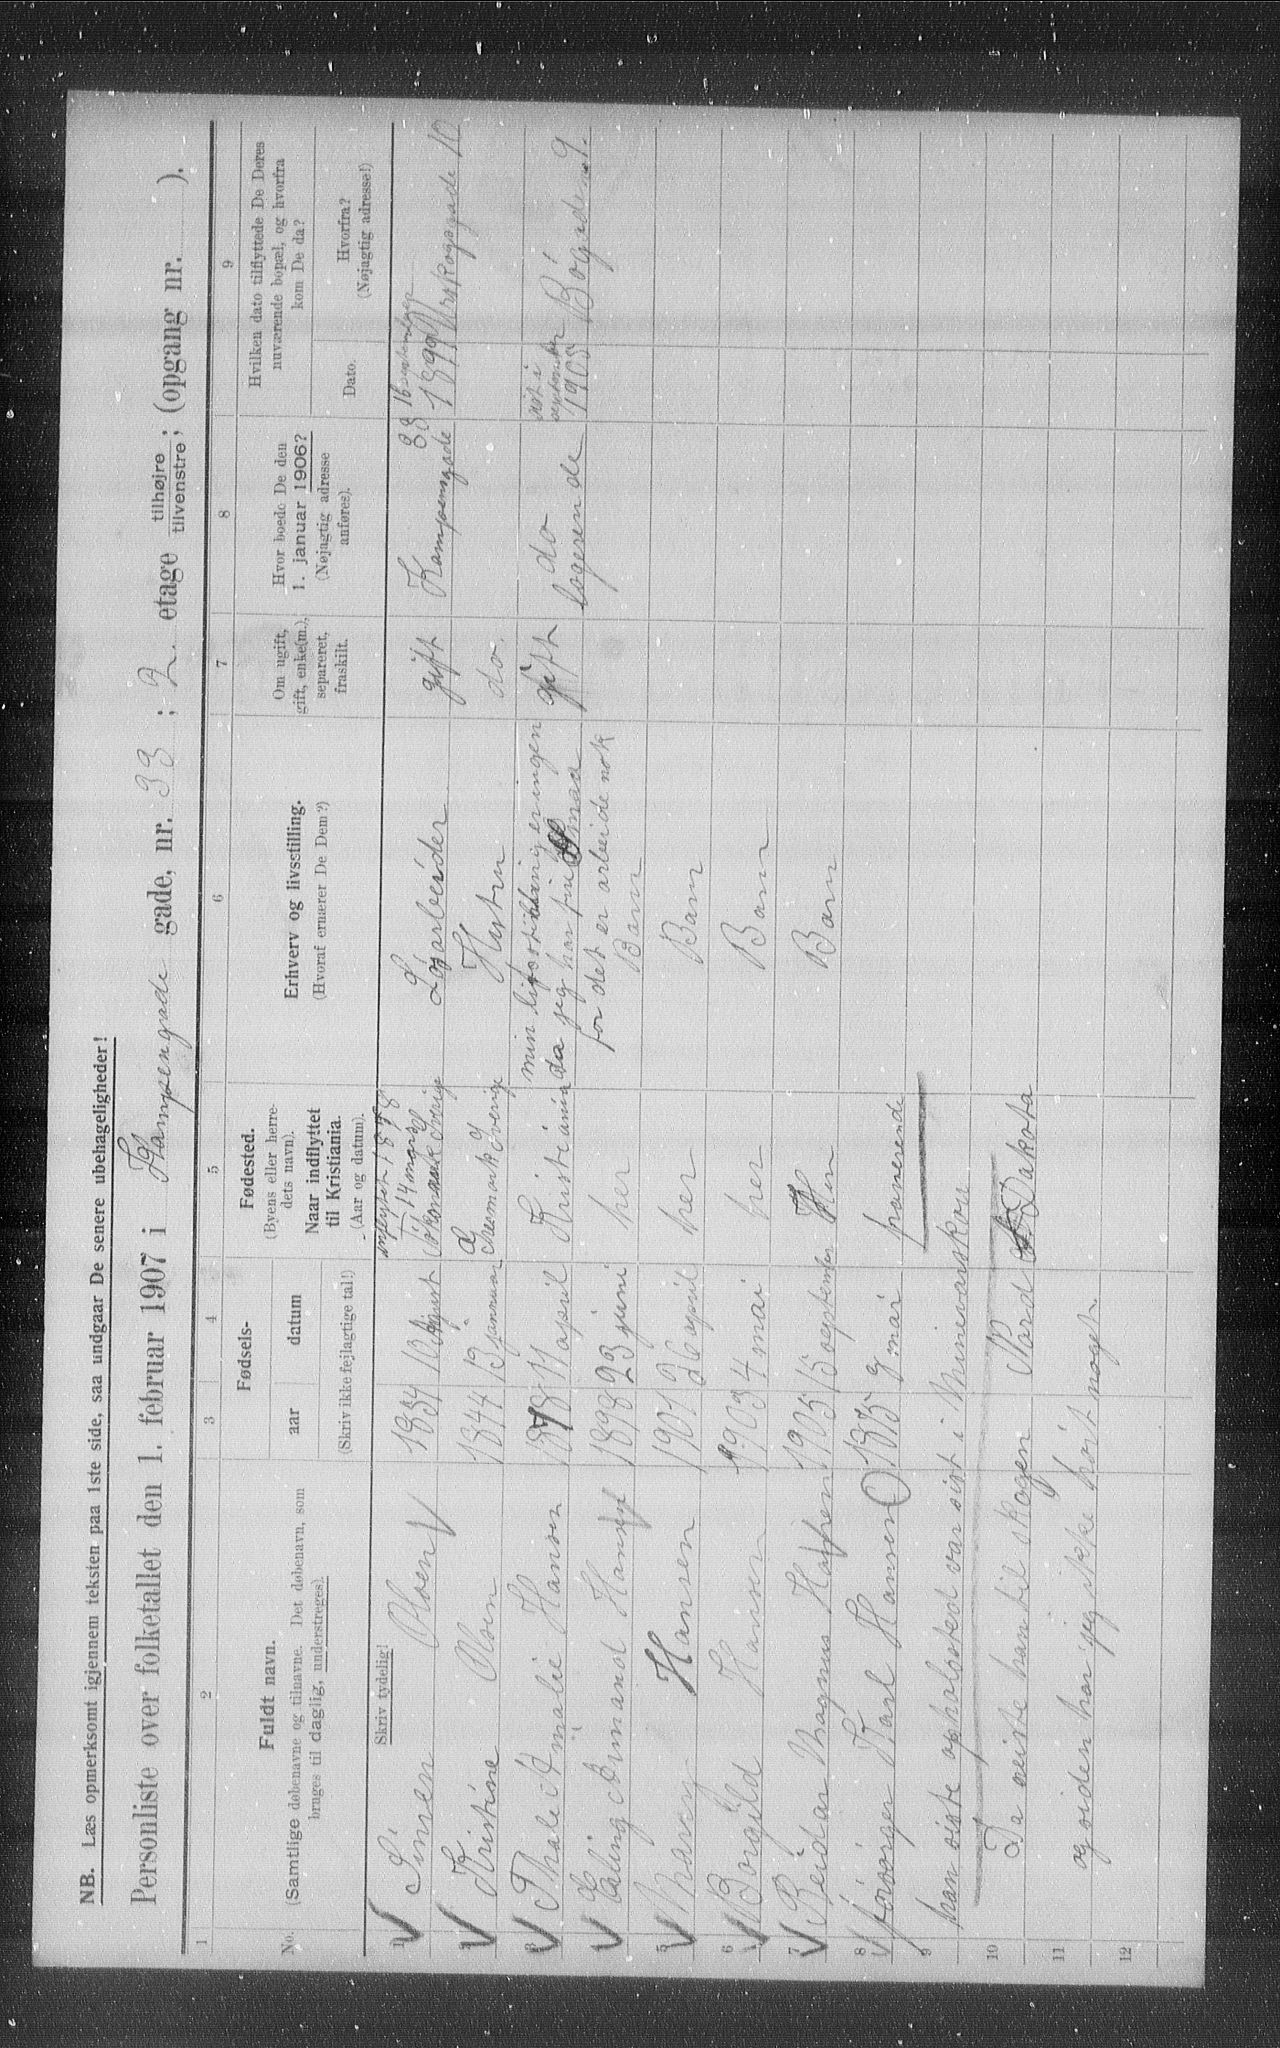 NB. Læs opmerksomt igjennem teksten paa 1ste side, saa undgaar De senere ubehageligheder!
Personliste over folketallet den 1. februar 1907 i Kampengade gade, nr. 33 ; 2. etage tilhøjre / tilvenstre; (opgang nr. ).
1 2 3 4 5 6 7 8 9
No.
Fuldt navn.
(Samtlige døbenavne og tilnavne. Det døbenavn, som
bruges til daglig, understreges).
Fødsels-
aar datum
(Skriv ikke fejlagtige tal!)
Fødested.
(Byens eller herre-
dets navn).
Naar indflyttet
til Kristiania.
(Aar og datum).
Erhverv og livsstilling.
(Hvoraf ernærer De Dem?)
Om ugift,
gift, enke(m.),
separeret,
fraskilt.
Hvor boede De den
1. januar 1906?
(Nøjagtig adresse
anføres).
Hvilken dato tilflyttede De Deres
nuværende bopæl, og hvorfra
kom De da?
Dato.
Hvorfra?
(Nøjagtig adresse!)
Skriv tydelig!
1 Olsen 1834 13 august 14 mars Sverige Løsarbeider gift Kampensgade 33 16 september 1899 10
2 Kristine Olsen 1844 13 januar Sverige do.
3 Thale Amalie Hansen 1878 11 april Kristiania min livsstilling er ingen gift do sist i september 1905 Bögaden 9.
da jeg har fin smaa
for det er arbeide nok
4 Erling Armand Hansen 1898 23 juni her Barn logerende
5 Hansen 1901 26 april her Barn
6 Borgild Hansen 1903 4 mai her Barn
7 Reidar Magnus Hansen 1905 15 september Her Barn
8 forsörger Karl Hansen 1875 9 mai
9 han siste opholdsted var sist i
10 Da reiste han til skogen Nord Dakota
11 og siden har jeg ikke hört noget.
12